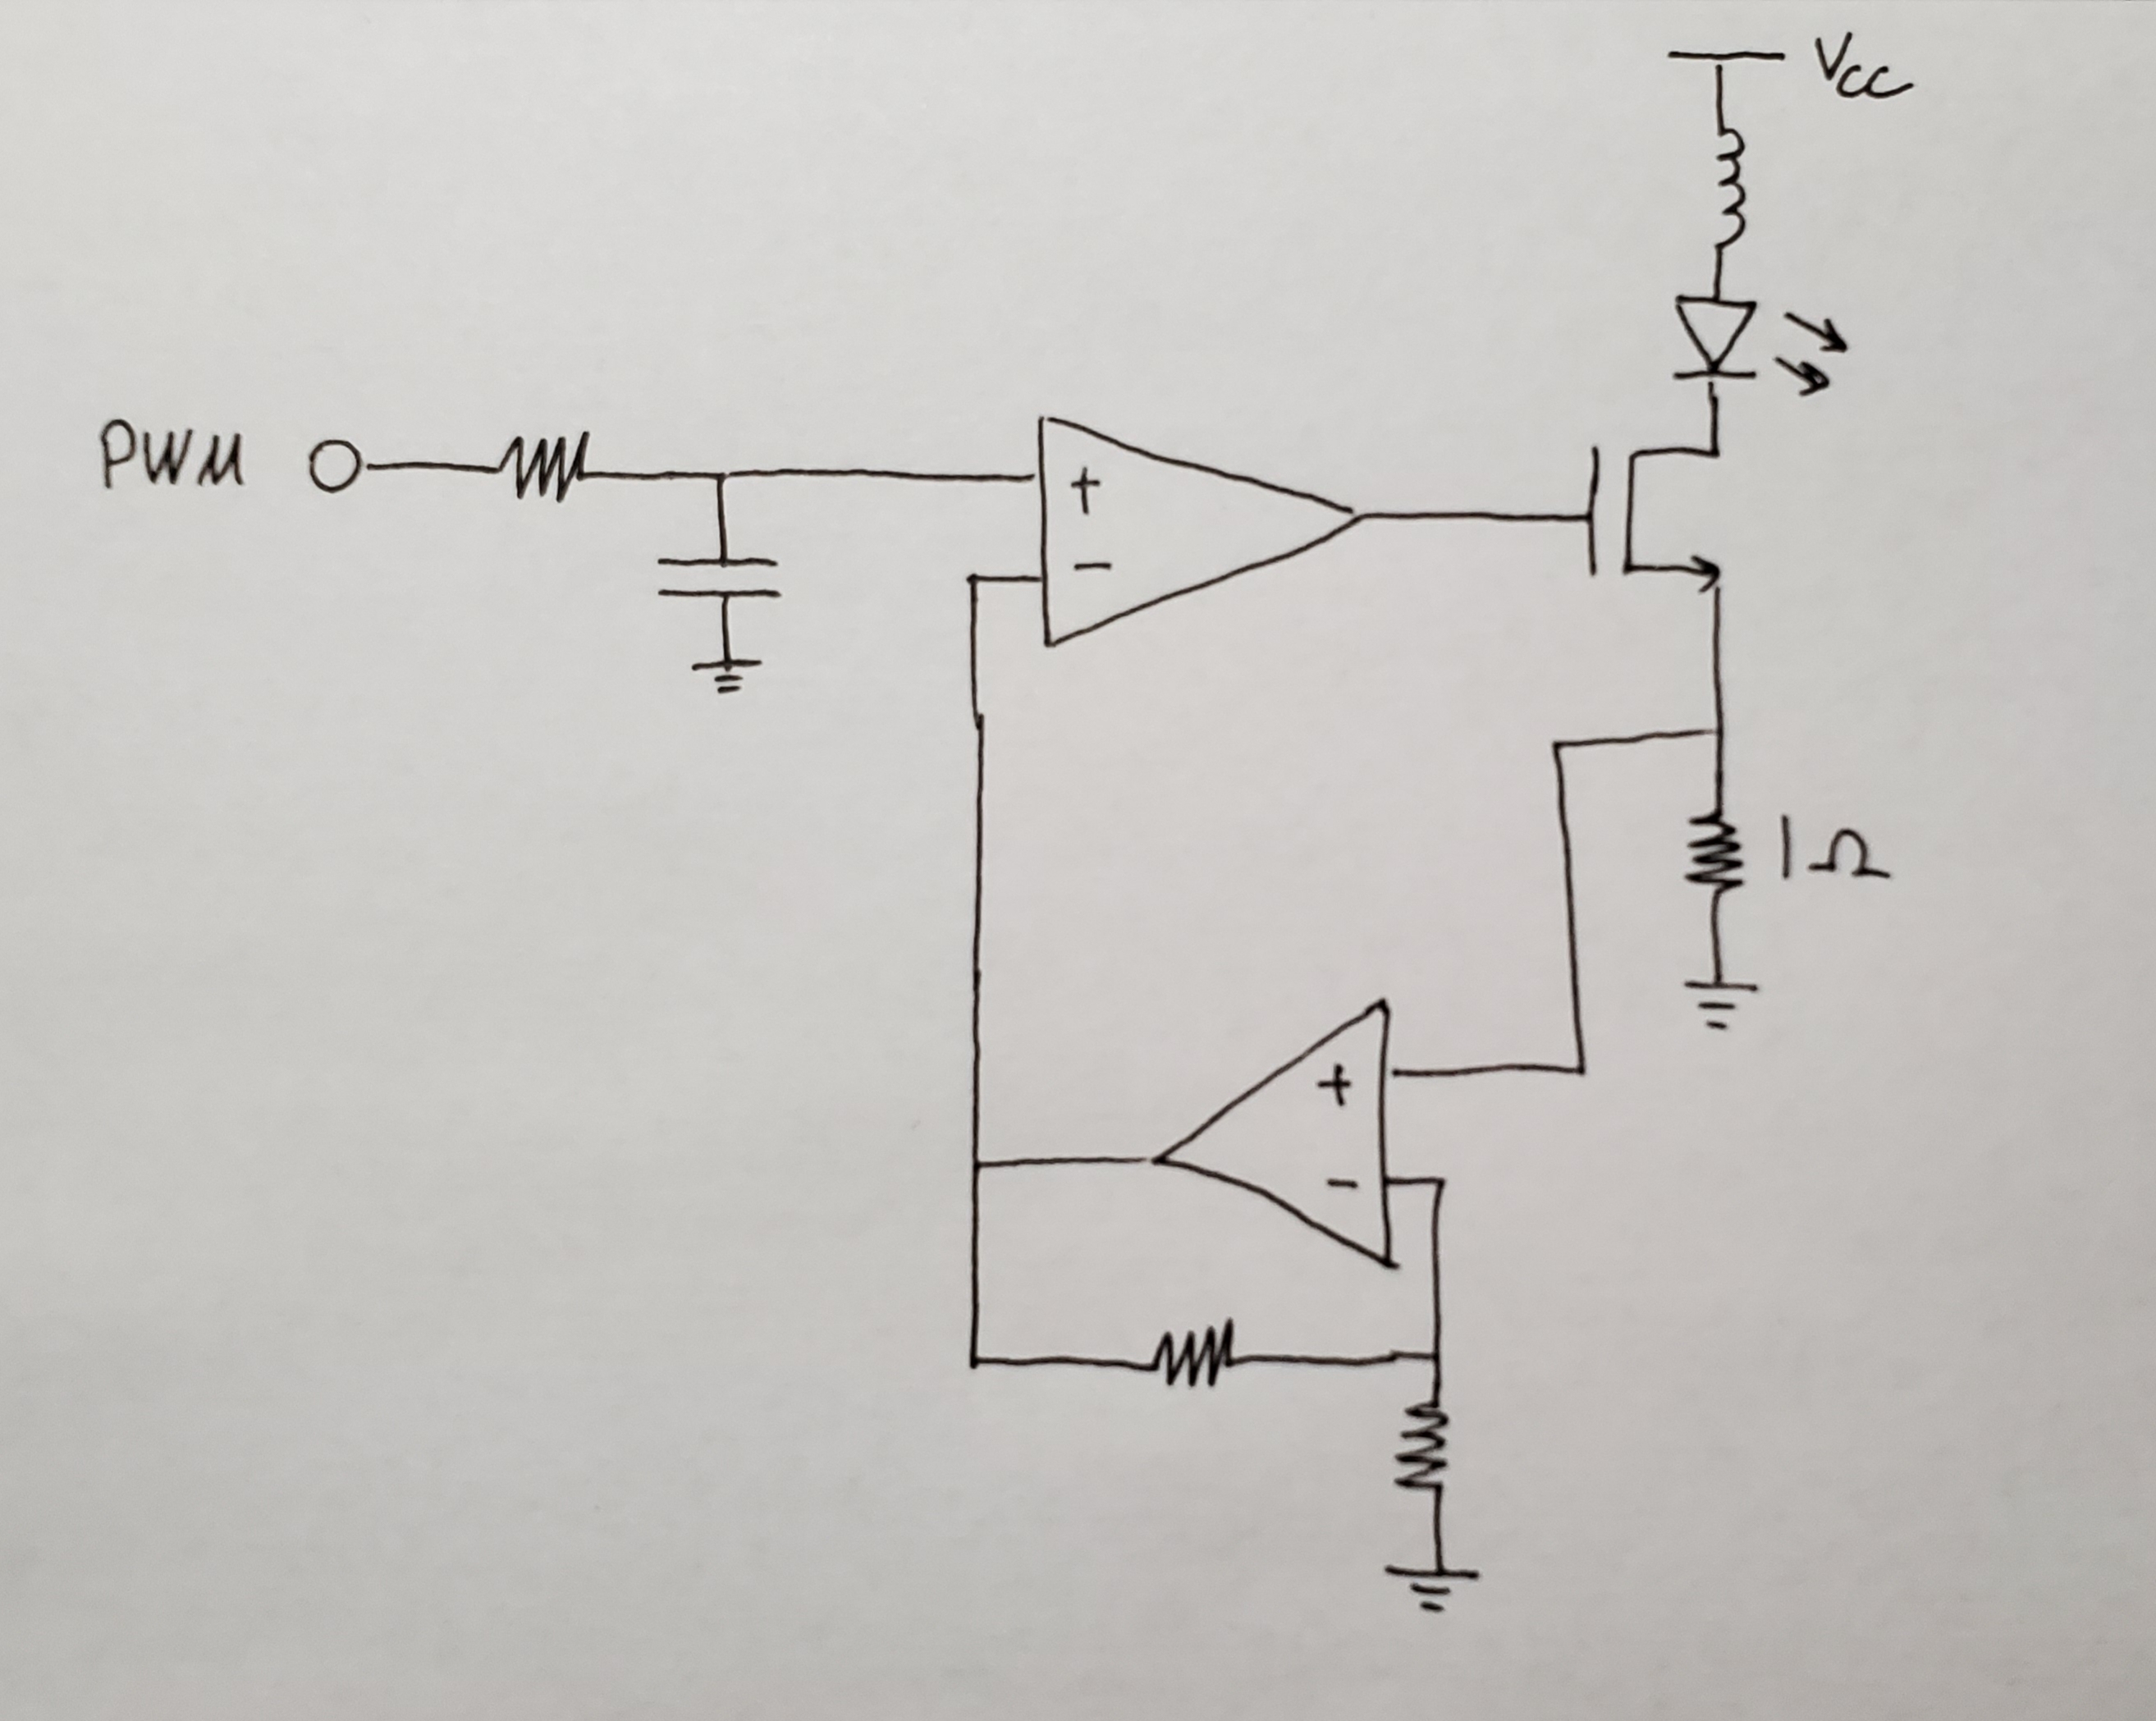 Vcc
PWM
+
-
1Ω
+
-